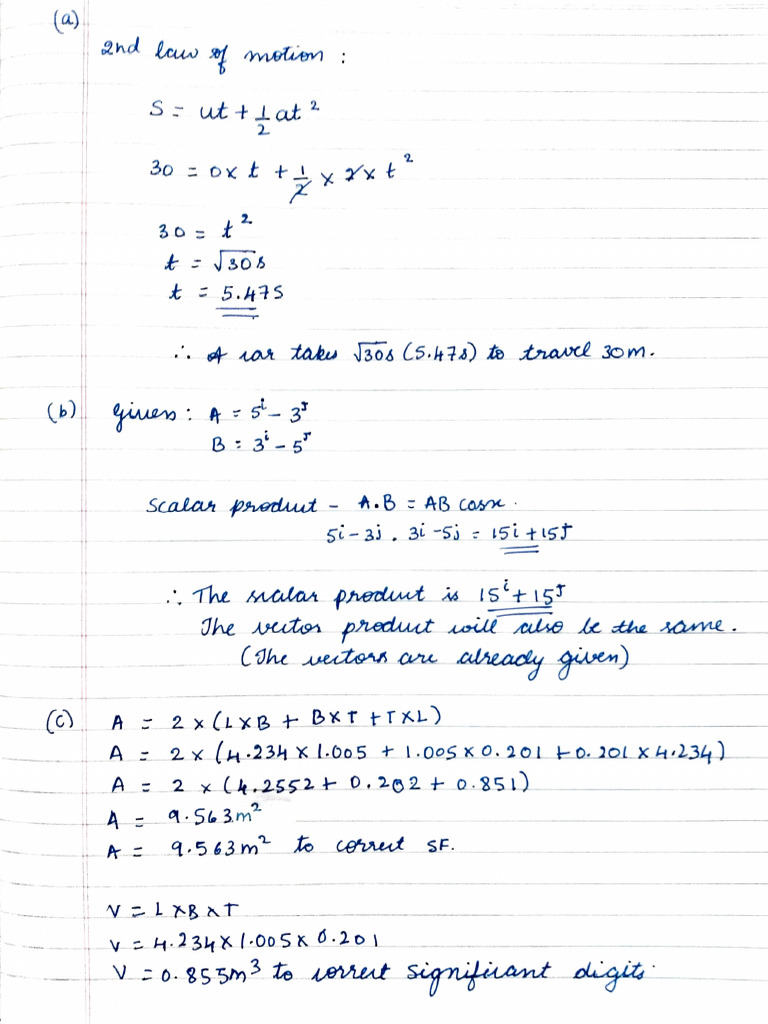 (a)
2nd law of motion :
S = ut + 1/2 at²
30 = 0 x t + 1/2 x 2 x t²
30 = t²
t = √30 s
t = 5.47s
∴ A car takes √30s (5.47s) to travel 30m.
(b) Given : A = 5ⁱ - 3ʲ
B = 3ⁱ - 5ʲ
Scalar product - A.B = AB cosx.
5i - 3j . 3i - 5j = 15i + 15j
∴ The scalar product is 15ⁱ + 15ʲ
The vector product will also be the same.
(The vectors are already given)
(c) A = 2 x (L x B + B x T + T x L)
A = 2 x (4.234 x 1.005 + 1.005 x 0.201 + 0.201 x 4.234)
A = 2 x (4.2552 + 0.202 + 0.851)
A = 9.563m²
A = 9.563m² to correct SF.
V = L x B x T
V = 4.234 x 1.005 x 0.201
V = 0.855m³ to correct significant digits.